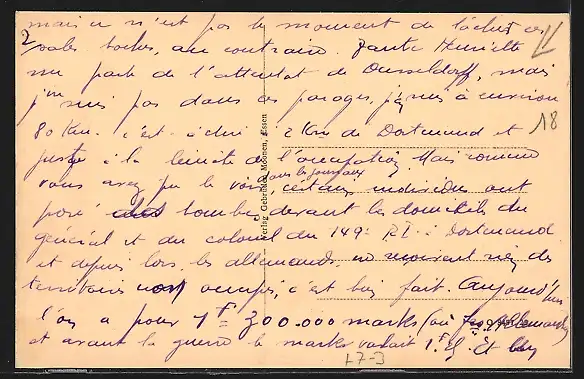 mais ce n'est pas le moment de lâcher ces
2 sales boches, au contraire. Tante Henriette
me parle de l'attentat de Dusseldorff, mais
je ne suis pas dans ces parages, j'en suis à environ
80 Km. c'est à dire à 2 Km de Dortmund et
juste à la limite de l'occupation. Mais comme
vous avez pu le voir dans les journaux, certains individus ont
posé des bombes devant les domiciles du
général et du colonel du 149e R.I. à Dortmund
et depuis lors, les allemands ne reçoivent rien des
territoires non occupés, c'est bien fait. Aujourd'hui
l'on a pour 1F = 300.000 marks
et avant la guerre le marks valait 1F
18
Verlag Gebrüder Moonen, Essen
17-3